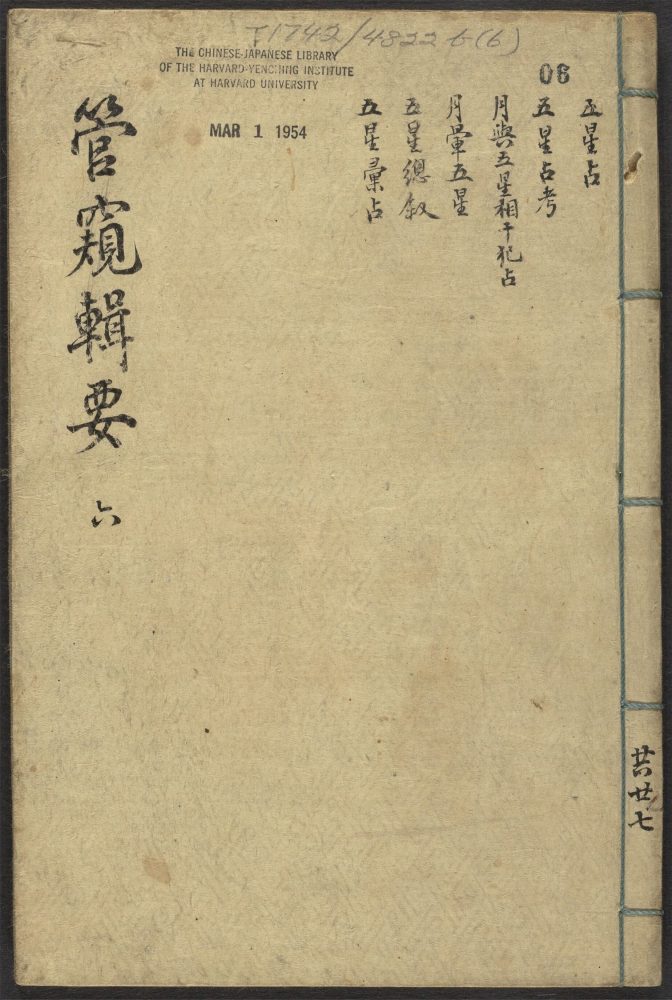 T1742/4822 b(6)
THE CHINESE-JAPANESE LIBRARY
OF THE HARVARD-YENCHING INSTITUTE
AT HARVARD UNIVERSITY
MAR 1 1954
06
五星占
五星占考
月與五星相干犯占
月暈五星
五星總叙
五星彙占
管窺輯要
六
共廿七